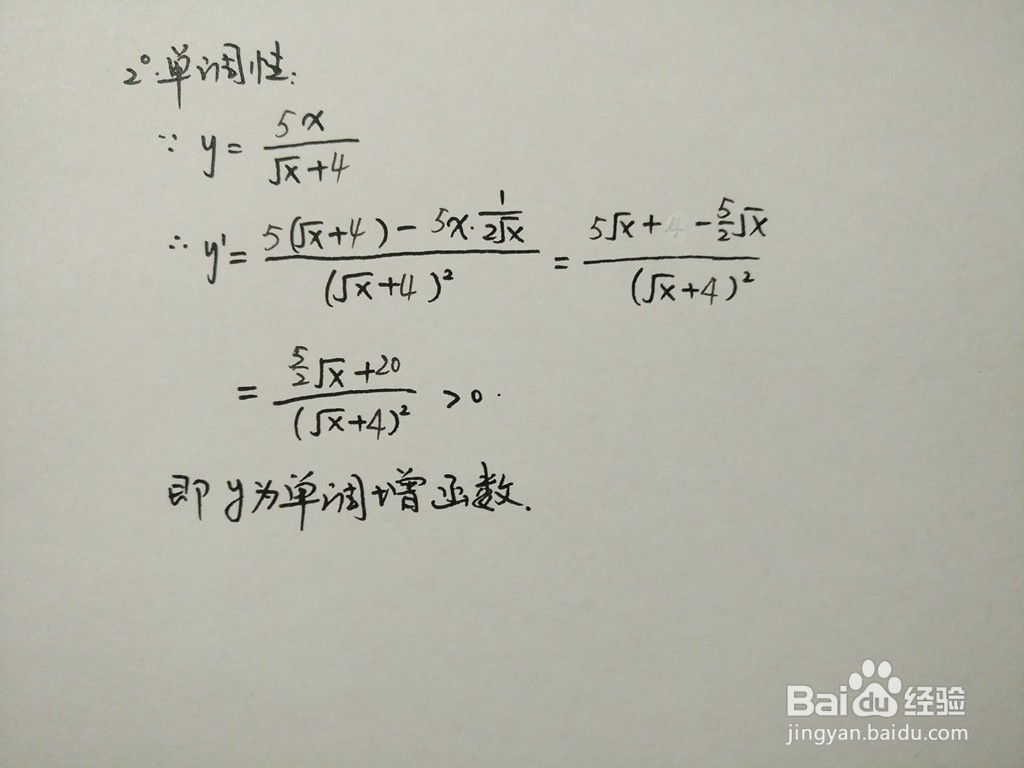 2°.单调性:
∵ y = 5x / (√x+4)
∴ y' = [5(√x+4) - 5x·1/(2√x)] / (√x+4)² = [5√x + - 5/2√x] / (√x+4)²
= [5/2√x + 20] / (√x+4)² > 0.
即 y为单调增函数.
Bai du 经验
jingyan.baidu.com